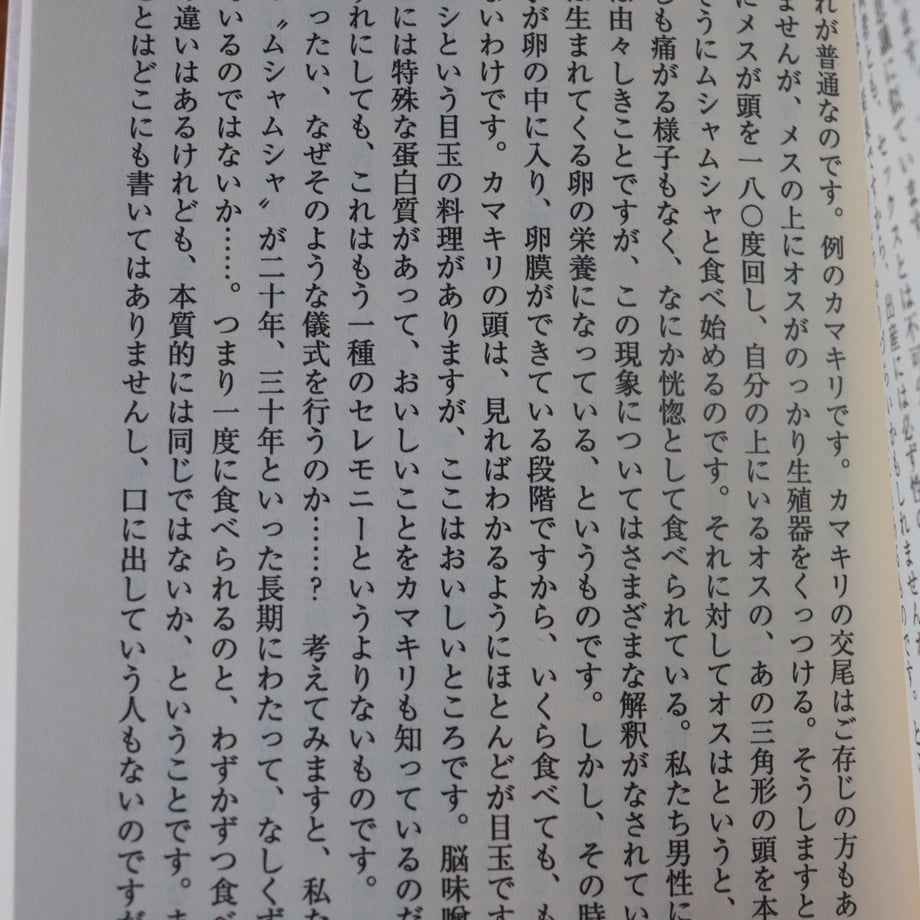 れが普通なのです。例のカマキリです。カマキリの交尾はご存じの方もあ
ませんが、メスの上にオスがのっかり生殖器をくっつける。そうしますと
にメスが頭を一八〇度回し、自分の上にいるオスの、あの三角形の頭を本
そうにムシャムシャと食べ始めるのです。それに対してオスはというと、
しも痛がる様子もなく、なにか恍惚として食べられている。私たち男性に
は由々しきことですが、この現象についてはさまざまな解釈がなされてい
は生まれてくる卵の栄養になっている、というものです。しかし、その時
が卵の中に入り、卵膜ができている段階ですから、いくら食べても、も
ないわけです。カマキリの頭は、見ればわかるようにほとんどが目玉です
シという目玉の料理がありますが、ここはおいしいところです。脳味噌
には特殊な蛋白質があって、おいしいことをカマキリも知っているのだ
ずれにしても、これはもう一種のセレモニーというよりないものです。
ったい、なぜそのような儀式を行うのか……？　考えてみますと、私た
〝ムシャムシャ〟が二十年、三十年といった長期にわたって、なしくず
いるのではないか……。つまり一度に食べられるのと、わずかずつ食べ
違いはあるけれども、本質的には同じではないか、ということです。ま
とはどこにも書いてはありませんし、口に出していう人もないのですが